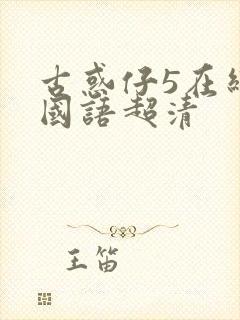 古惑仔5在
國語超清
王笛